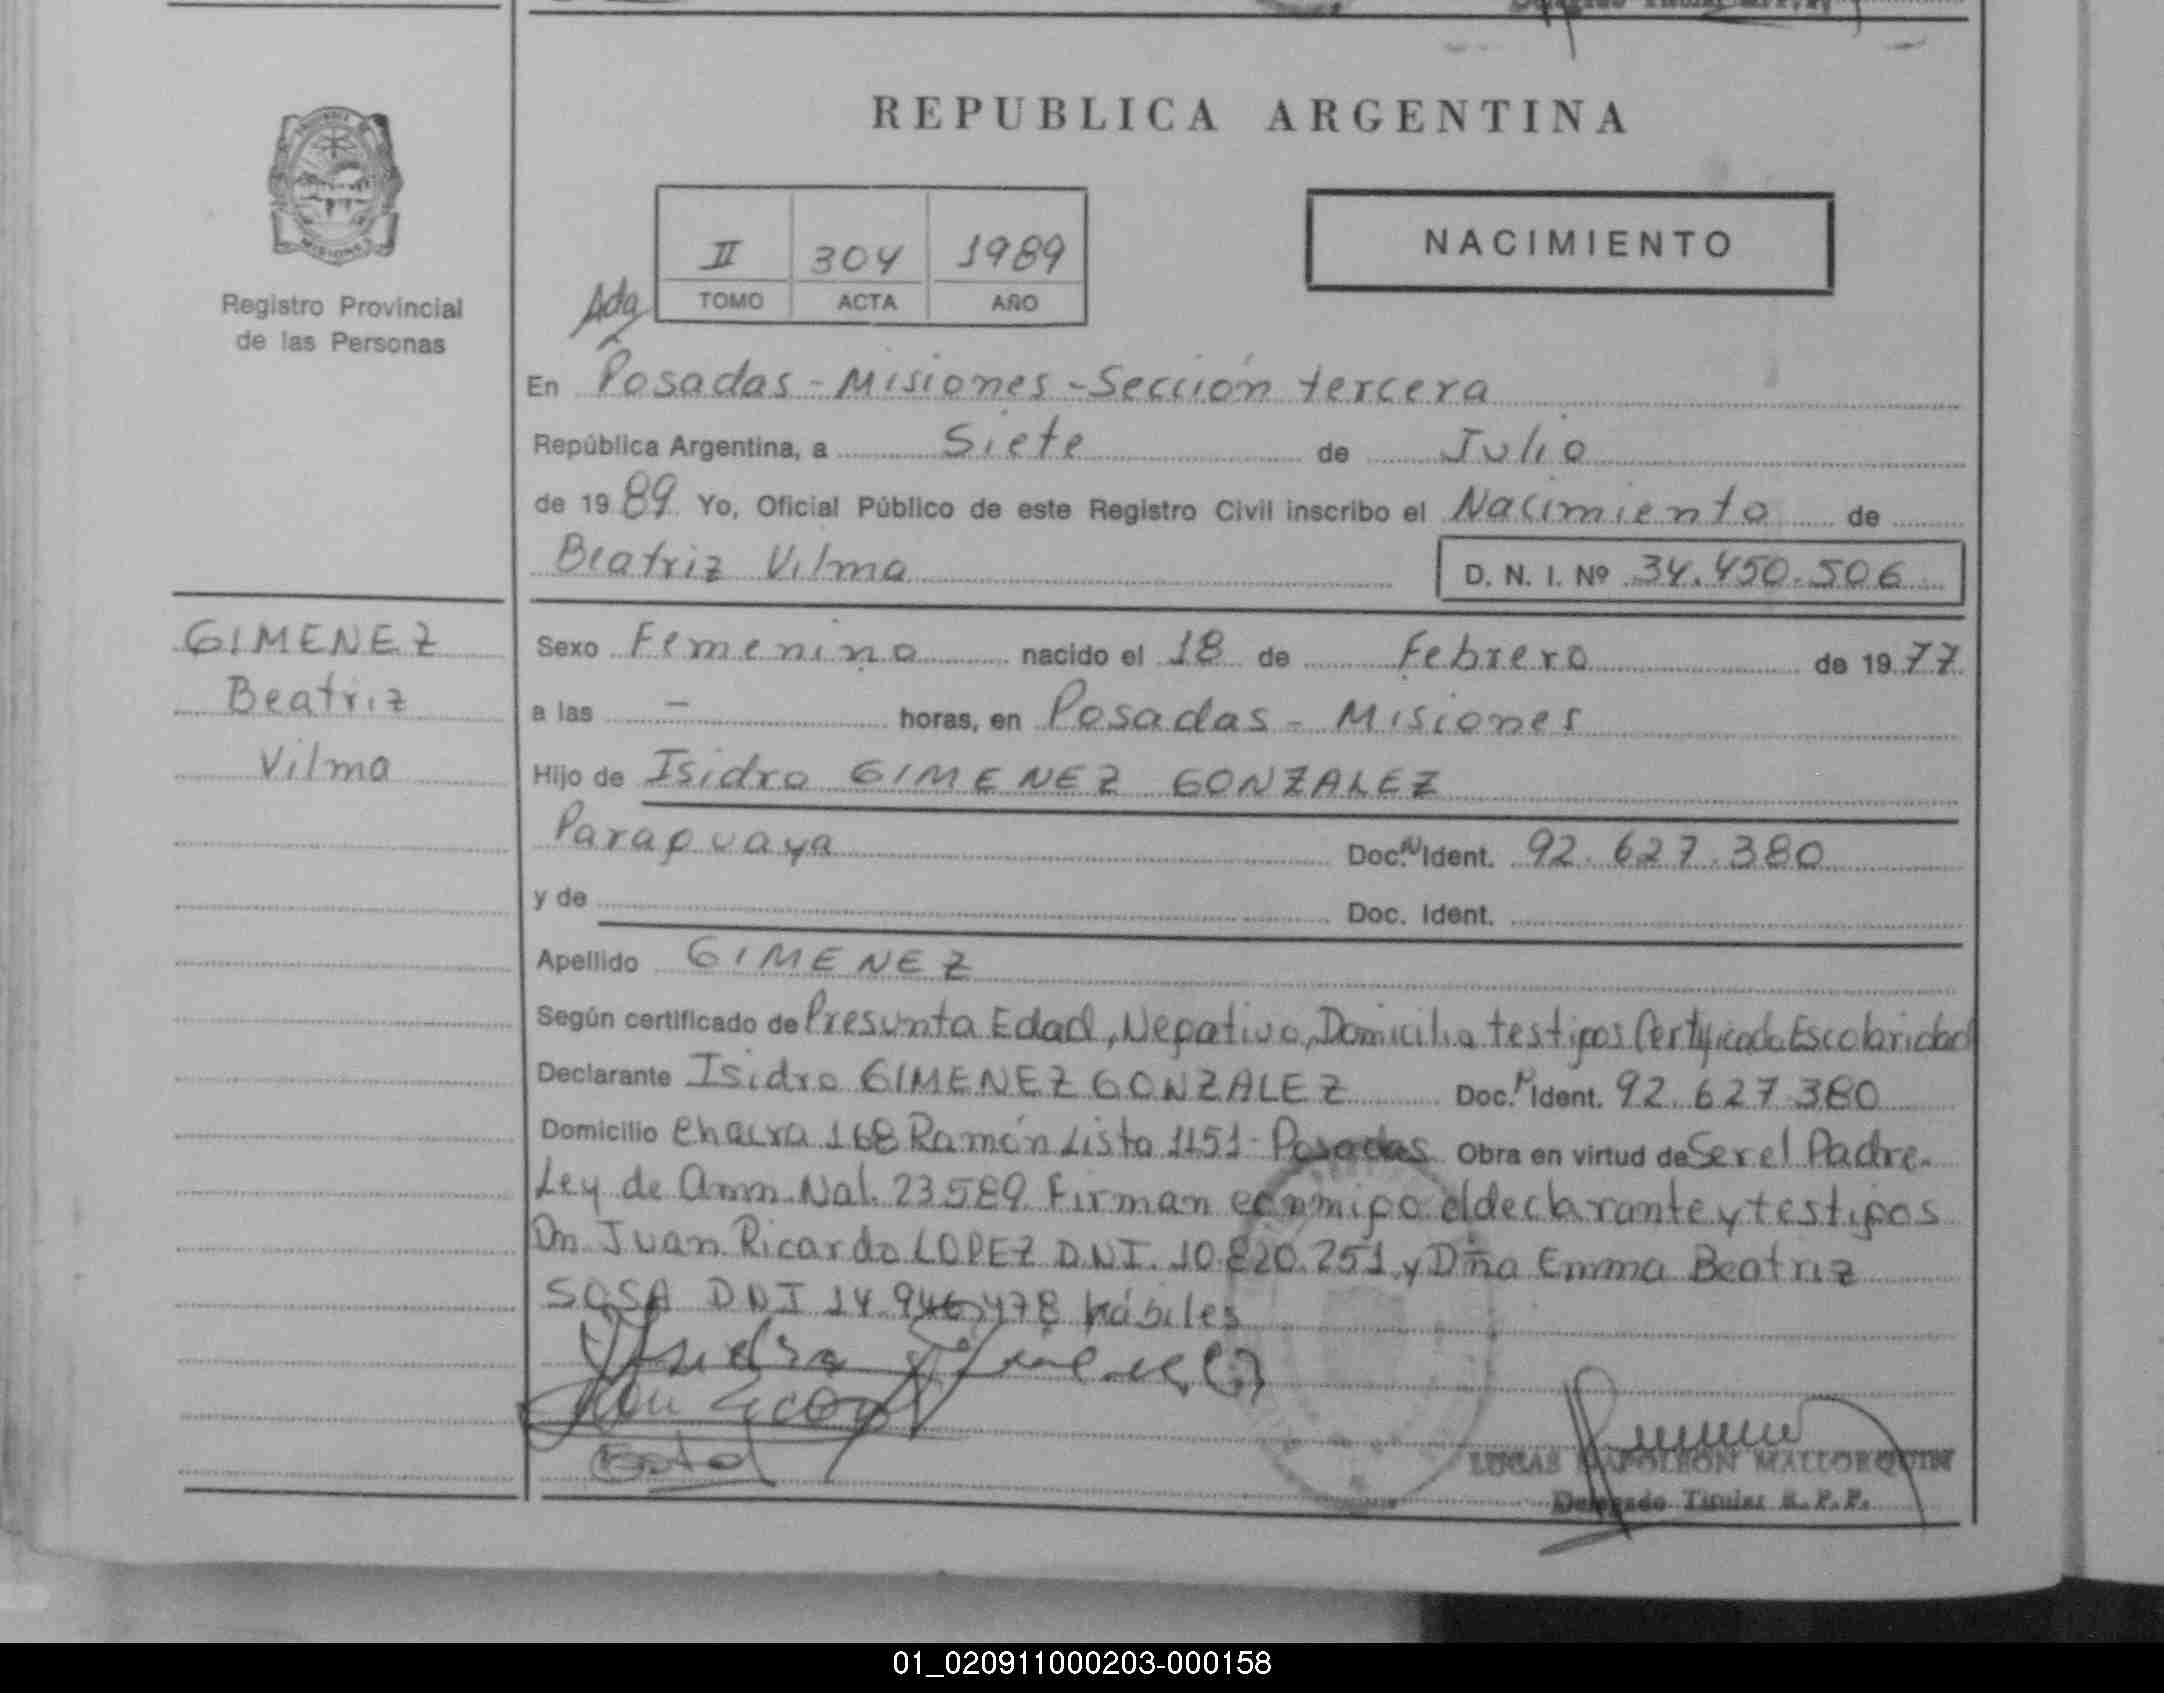 REPUBLICA ARGENTINA
NACIMIENTO
II 304 1989
TOMO ACTA AÑO
Registro Provincial
de las Personas
Ada
En Posadas - Misiones - Sección tercera
República Argentina, a Siete de Julio
de 1989 Yo, Oficial Público de este Registro Civil inscribo el Nacimiento de
Beatriz Vilma D. N. I. Nº 34.450.506
GIMENEZ
Beatriz
Vilma
Sexo Femenino nacido el 18 de Febrero de 1977
a las - horas, en Posadas - Misiones
Hijo de Isidro GIMENEZ GONZALEZ
Paraguaya Doc. N Ident. 92.627.380
y de Doc. Ident.
Apellido GIMENEZ
Según certificado de Presunta Edad, Negativo, Domicilio testigos Certificado Escolaridad
Declarante Isidro GIMENEZ GONZALEZ Doc. N Ident. 92.627.380
Domicilio Chacra 168 Ramón Lista 1151 - Posadas Obra en virtud de Ser el Padre.
Ley de Amn. Nal. 23589. Firman conmigo el declarante y testigos
Dn. Juan Ricardo LOPEZ DNI. 10.820.251 y Dña Emma Beatriz
SOSA DNI 14.946.478 hábiles
LUCAS NAPOLEON MALLORQUIN
Delegado Titular R.P.P.
01_020911000203-000158